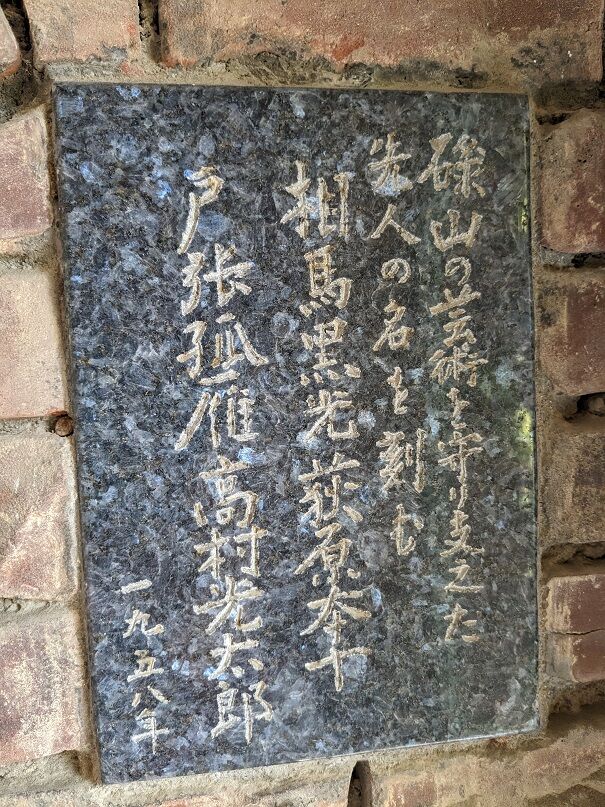 碌山の芸術を守り支えた
先人の名を刻む
相馬黒光 荻原本十
戸張孤雁 高村光太郎
一九五八年